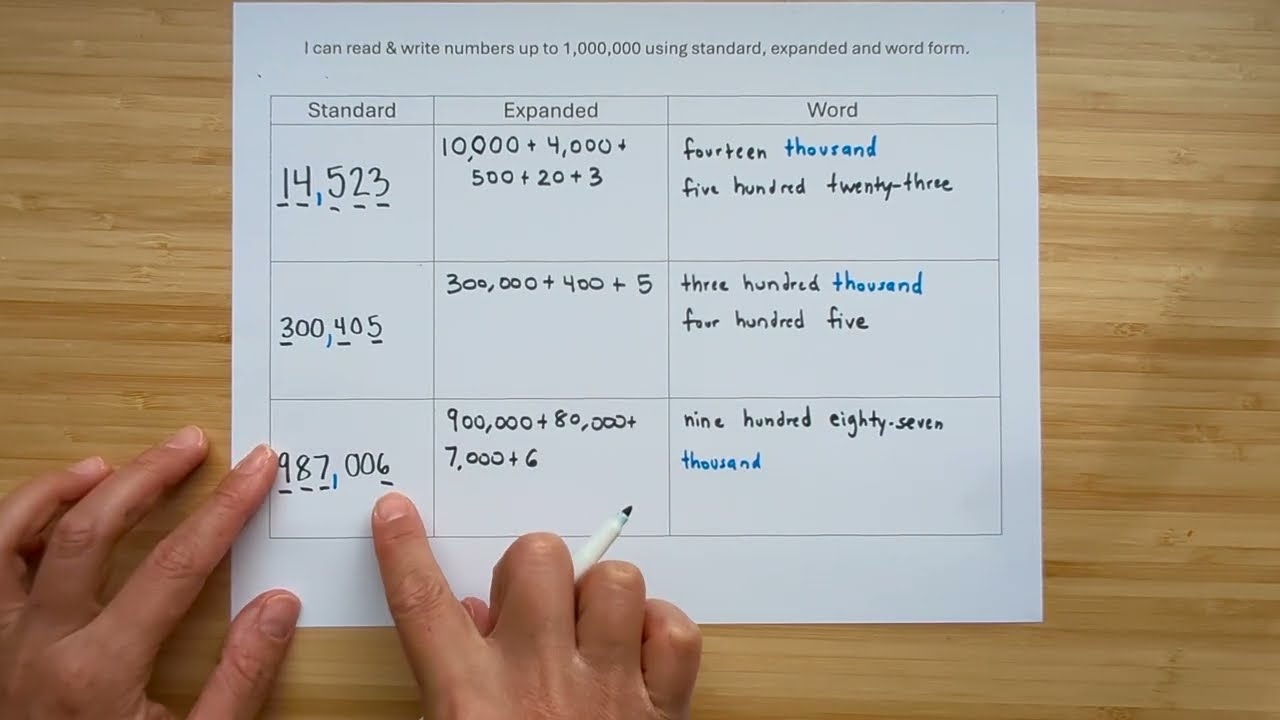 I can read & write numbers up to 1,000,000 using standard, expanded and word form.
Standard Expanded Word
14,523
10,000 + 4,000 +
500 + 20 + 3
fourteen thousand
five hundred twenty-three
300,405
300,000 + 400 + 5
three hundred thousand
four hundred five
987,006
900,000 + 80,000 +
7,000 + 6
nine hundred eighty-seven
thousand